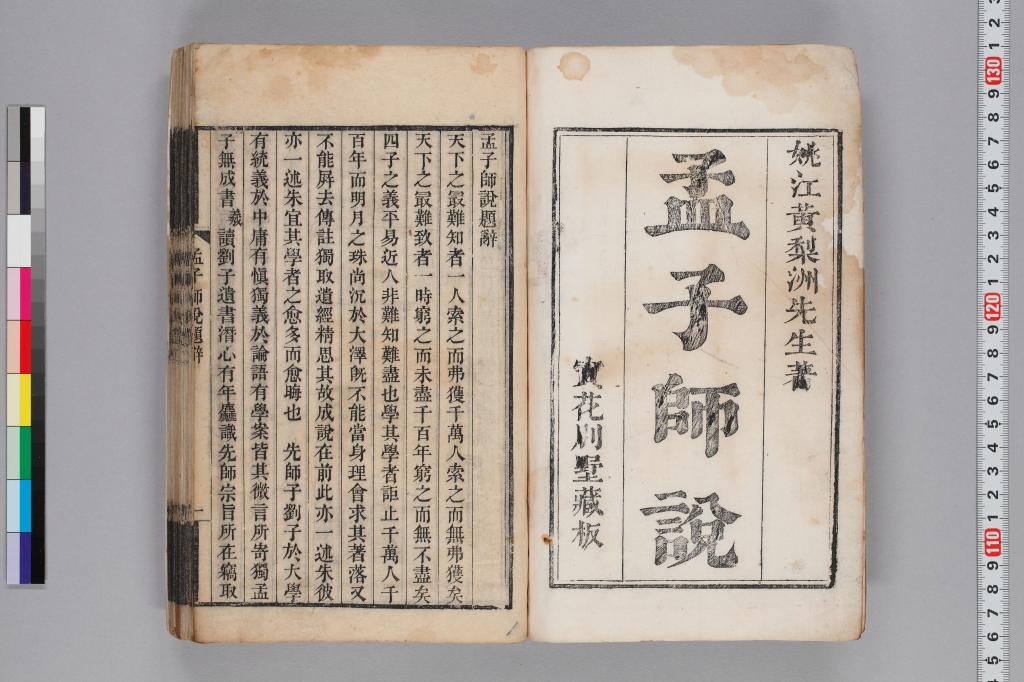 姚江黃梨洲先生著
孟子師說
花別墅藏板
孟子師說題辭
天下之最難知者一人索之而弗獲千萬人索之而無弗獲矣
天下之最難致者一時窮之而未盡千百年窮之而無不盡矣
四子之義平易近人非難知難盡也學其學者詎止千萬人千
百年而明月之珠尚沉於大澤旣不能當身理會求其著落又
不能屛去傳註獨取遺經精思其故成說在前此亦一述朱彼
亦一述朱宜其學者之愈多而愈晦也 先師子劉子於大學
有統義於中庸有愼獨義於論語有學案皆其微言所寄獨孟
子無成書羲讀劉子遺書潛心有年麤識先師宗旨所在竊取
孟子師說題辭
一
130
120
110